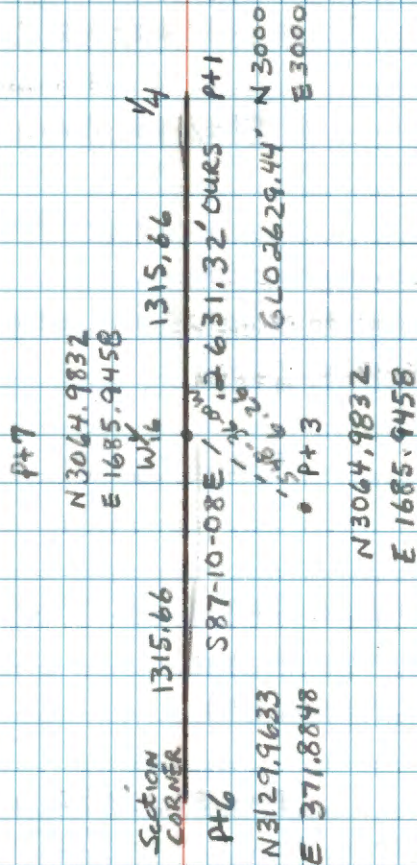 Pt7
N3064.9832
E1685.9458
SECTION
CORNER
1315.66
W1/16
1315.66
1/4
Pt6
S87-10-08E / 2631.32' OURS
Pt1
GLO 2629.44'
N3000
E3000
N3129.9633
E 371.8848
Pt3
N3064.9832
E 1685.9458